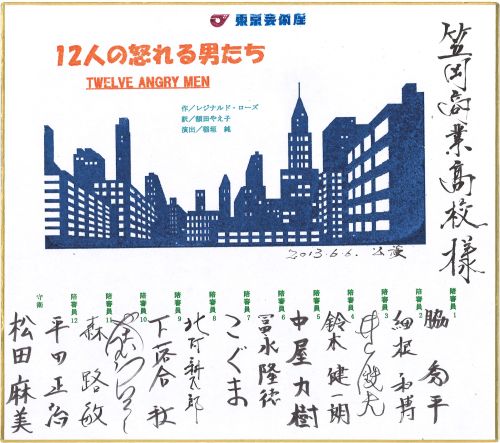 東京芸術座
12人の怒れる男たち
TWELVE ANGRY MEN
作／レジナルド・ローズ
訳／額田やえ子
演出／稲垣 純
笠岡商業高校様
2013.6.6. 公演
陪審員1 脇 秀平
陪審員2 細根 和博
陪審員3
陪審員4 鈴木 健一朗
陪審員5 中屋 力樹
陪審員6 冨永 隆徳
陪審員7 こぐま
陪審員8 北村 耕太郎
陪審員9 下落合
陪審員10
陪審員11 森 路敏
陪審員12 平田 正治
守衛 松田 麻美